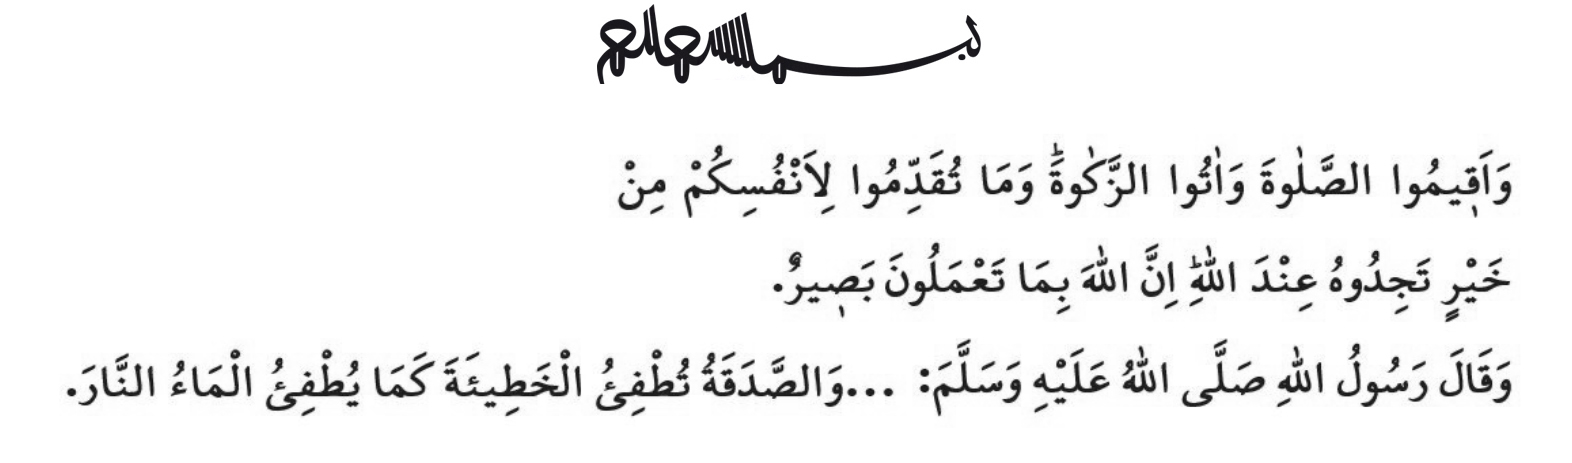 بسم الله الرحمن الرحيم
وَاَقٖيمُوا الصَّلٰوةَ وَاٰتُوا الزَّكٰوةَؕ وَمَا تُقَدِّمُوا لِاَنْفُسِكُمْ مِنْ
خَيْرٍ تَجِدُوهُ عِنْدَ اللّٰهِؕ اِنَّ اللّٰهَ بِمَا تَعْمَلُونَ بَصٖيرٌ.
وَقَالَ رَسُولُ اللّٰهِ صَلَّى اللّٰهُ عَلَيْهِ وَسَلَّمَ: ...وَالصَّدَقَةُ تُطْفِئُ الْخَطِيئَةَ كَمَا يُطْفِئُ الْمَاءُ النَّارَ.